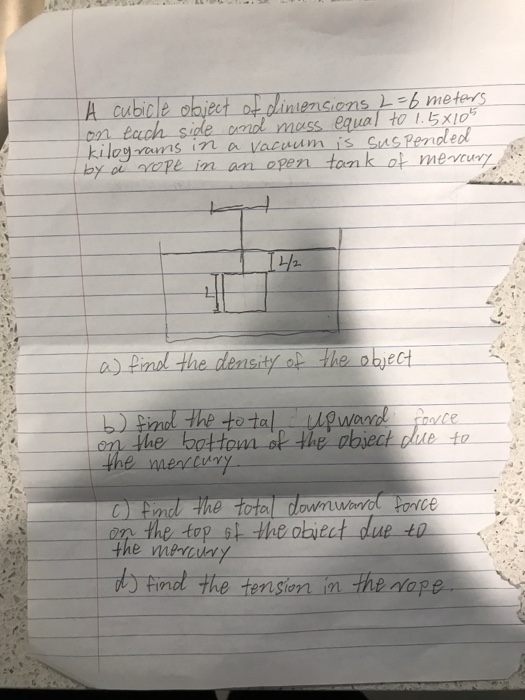 A cubicle object of dimensions L=6 meters
on each side and mass equal to 1.5x10⁵
kilograms in a vacuum is suspended
by a rope in an open tank of mercury
L/2
L
a) find the density of the object
b) find the total upward force
on the bottom of the object due to
the mercury
c) find the total downward force
on the top of the object due to
the mercury
d) find the tension in the rope.